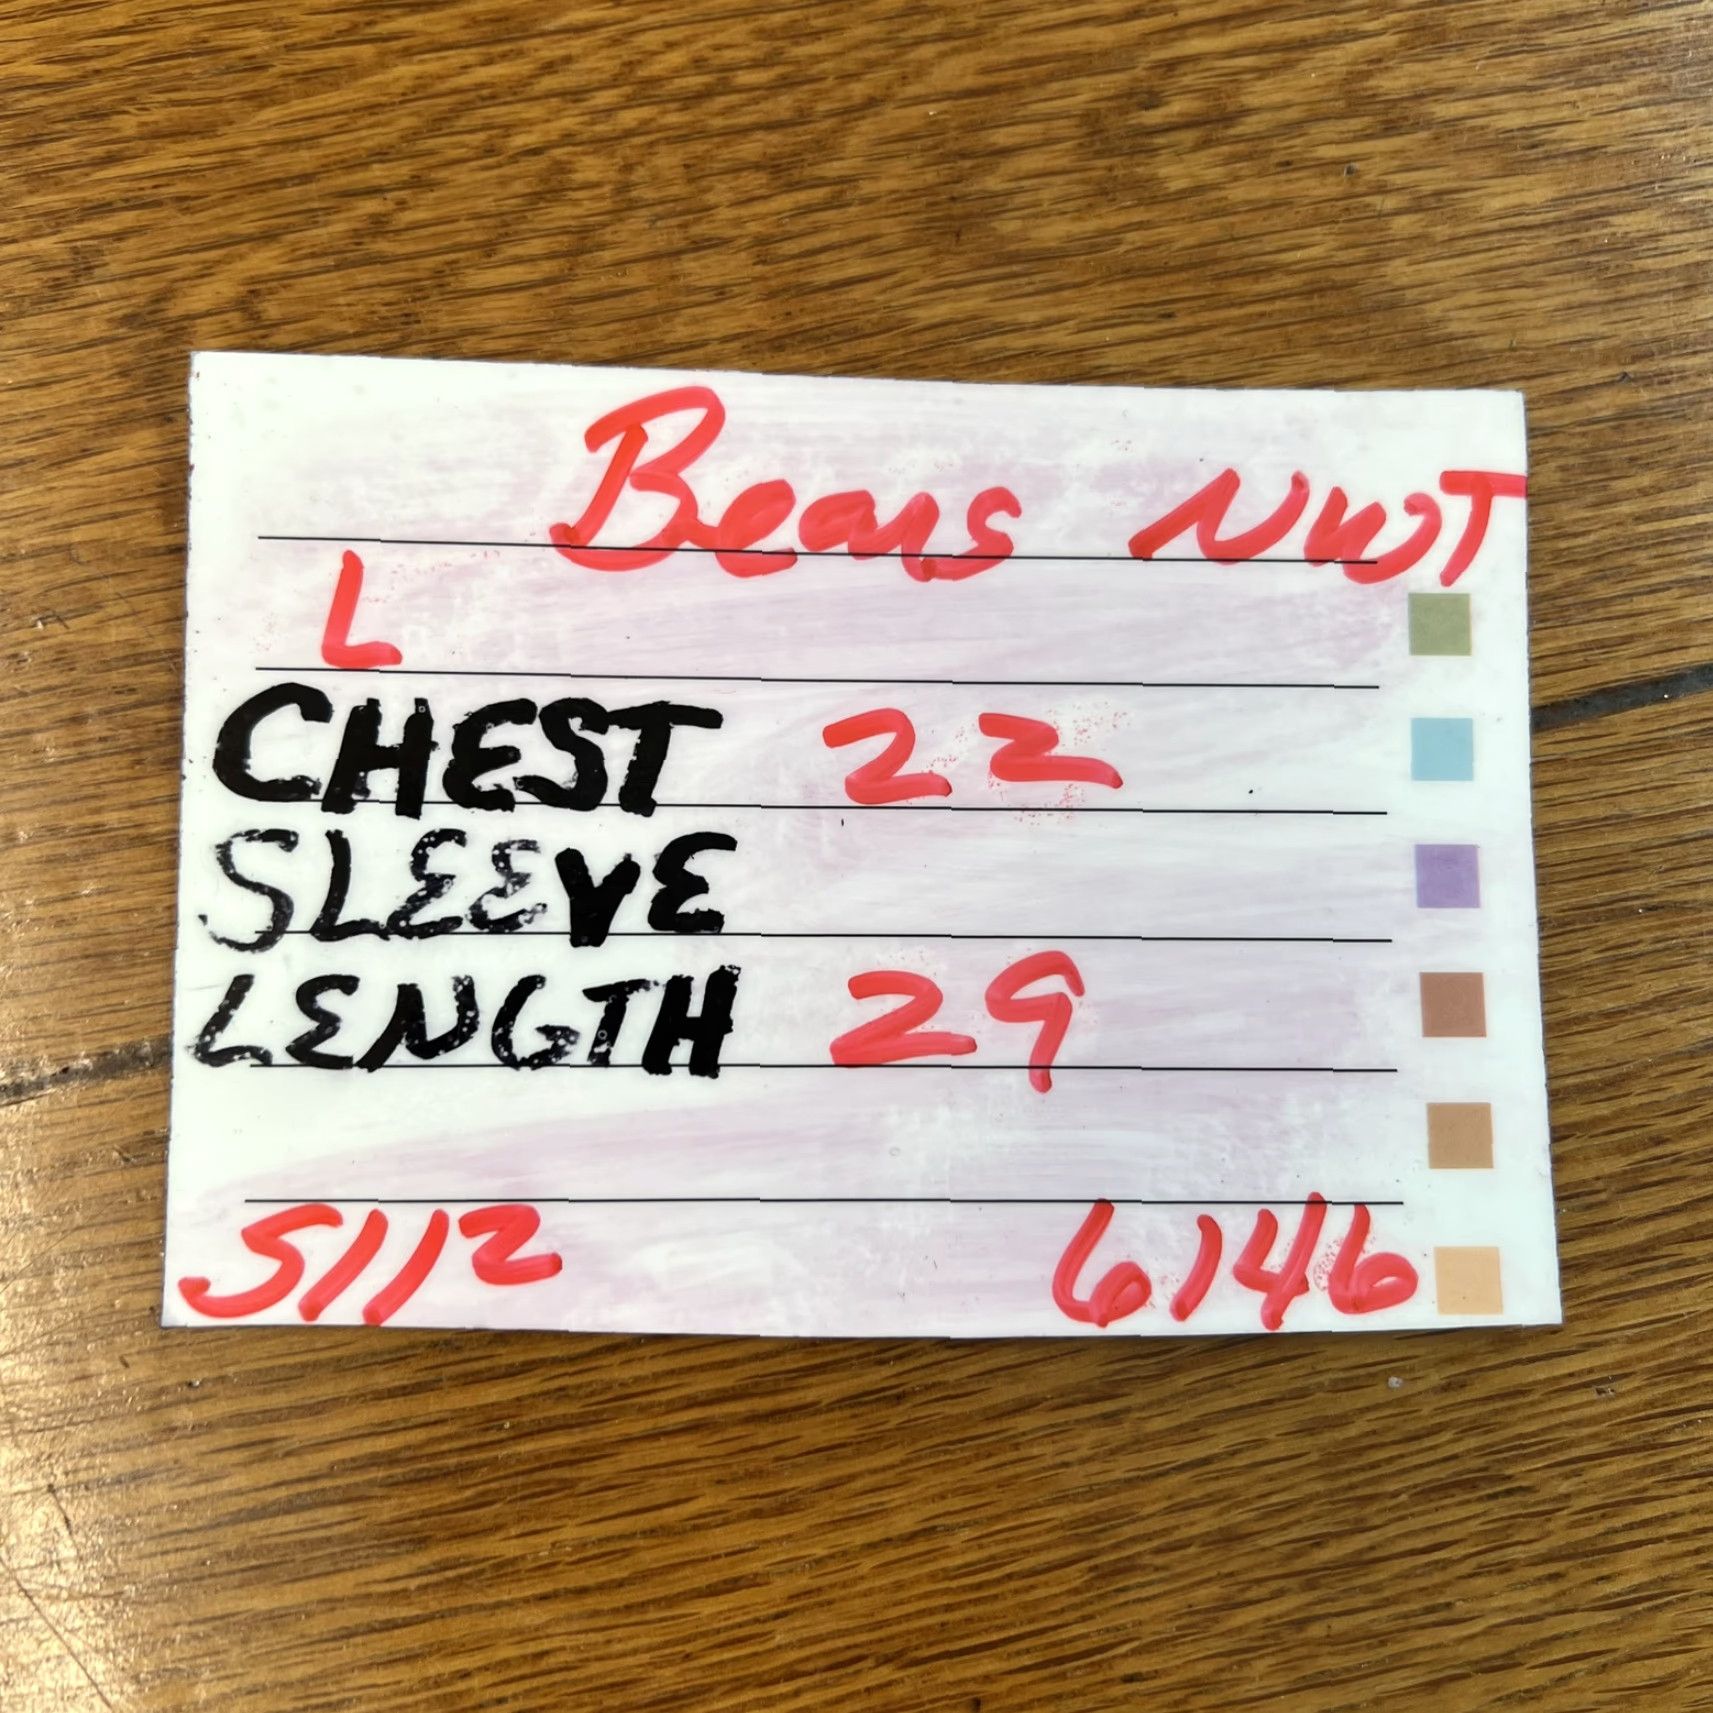 Bears NWT
L
CHEST 22
SLEEVE
LENGTH 29
S112 6146